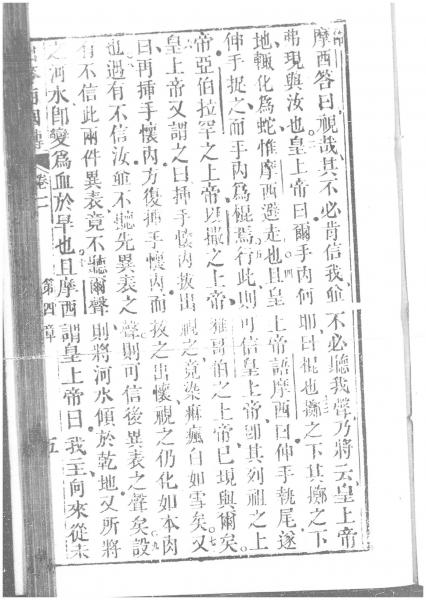 摩西答曰視哉其不必肯信我並不必聽我聲乃將云皇上帝
弗現與汝也皇上帝曰爾手內何耶曰棍也擲之下其擲之下
地輒化為蛇惟摩西避走也且皇上帝語摩西曰伸手執尾遂
伸手捉之而手內為棍焉行此則可信皇上帝即其列祖之上
帝亞伯拉罕之上帝以撒之上帝雅哥伯之上帝已現與爾矣
皇上帝又謂之曰揷手懷內拔出視之竟染痳瘋白如雪矣又
曰再揷手懷內方復揷手懷內而拔之出懷視之仍化如本肉
也遇有不信汝並不聽先異表之聲則可信後異表之聲矣設
有不信此兩件異表竟不聽爾聲則將河水傾於乾地又所將
之河水即變為血於旱也且摩西謂皇上帝曰我主向來從未
卷二
第四章
五